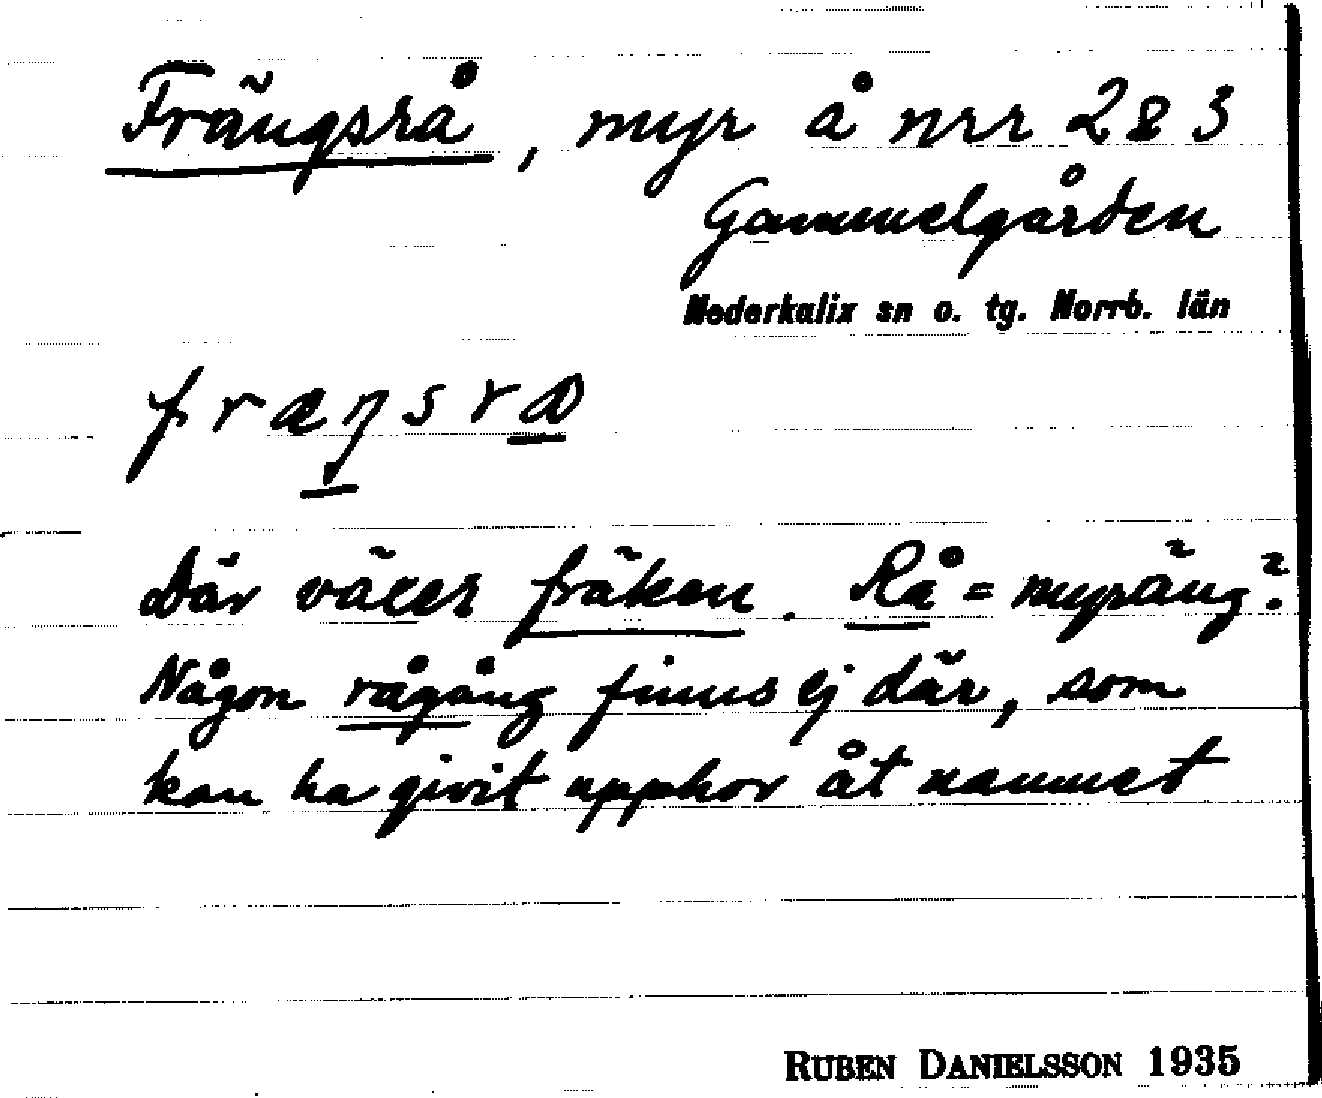 Frängsrå, myr å nrr 2 & 3
Gammelgården
Nederkalix sn o. tg. Norrb. län
fræŋsrå
Där växer fräken. Rå = myräng?
Någon rågång finns ej där, som
kan ha givit upphov åt namnet
RUBEN DANIELSSON 1935